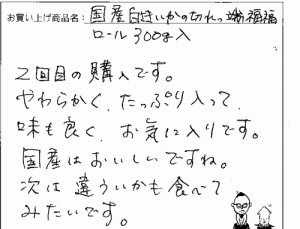 お買い上げ商品名: 国産白きいかの切れっ端福福
ロール300g入
2回目の購入です。
やわらかく、たっぷり入って、
味も良く、お気に入りです。
国産はおいしいですね。
次は違ういかも食べて
みたいです。